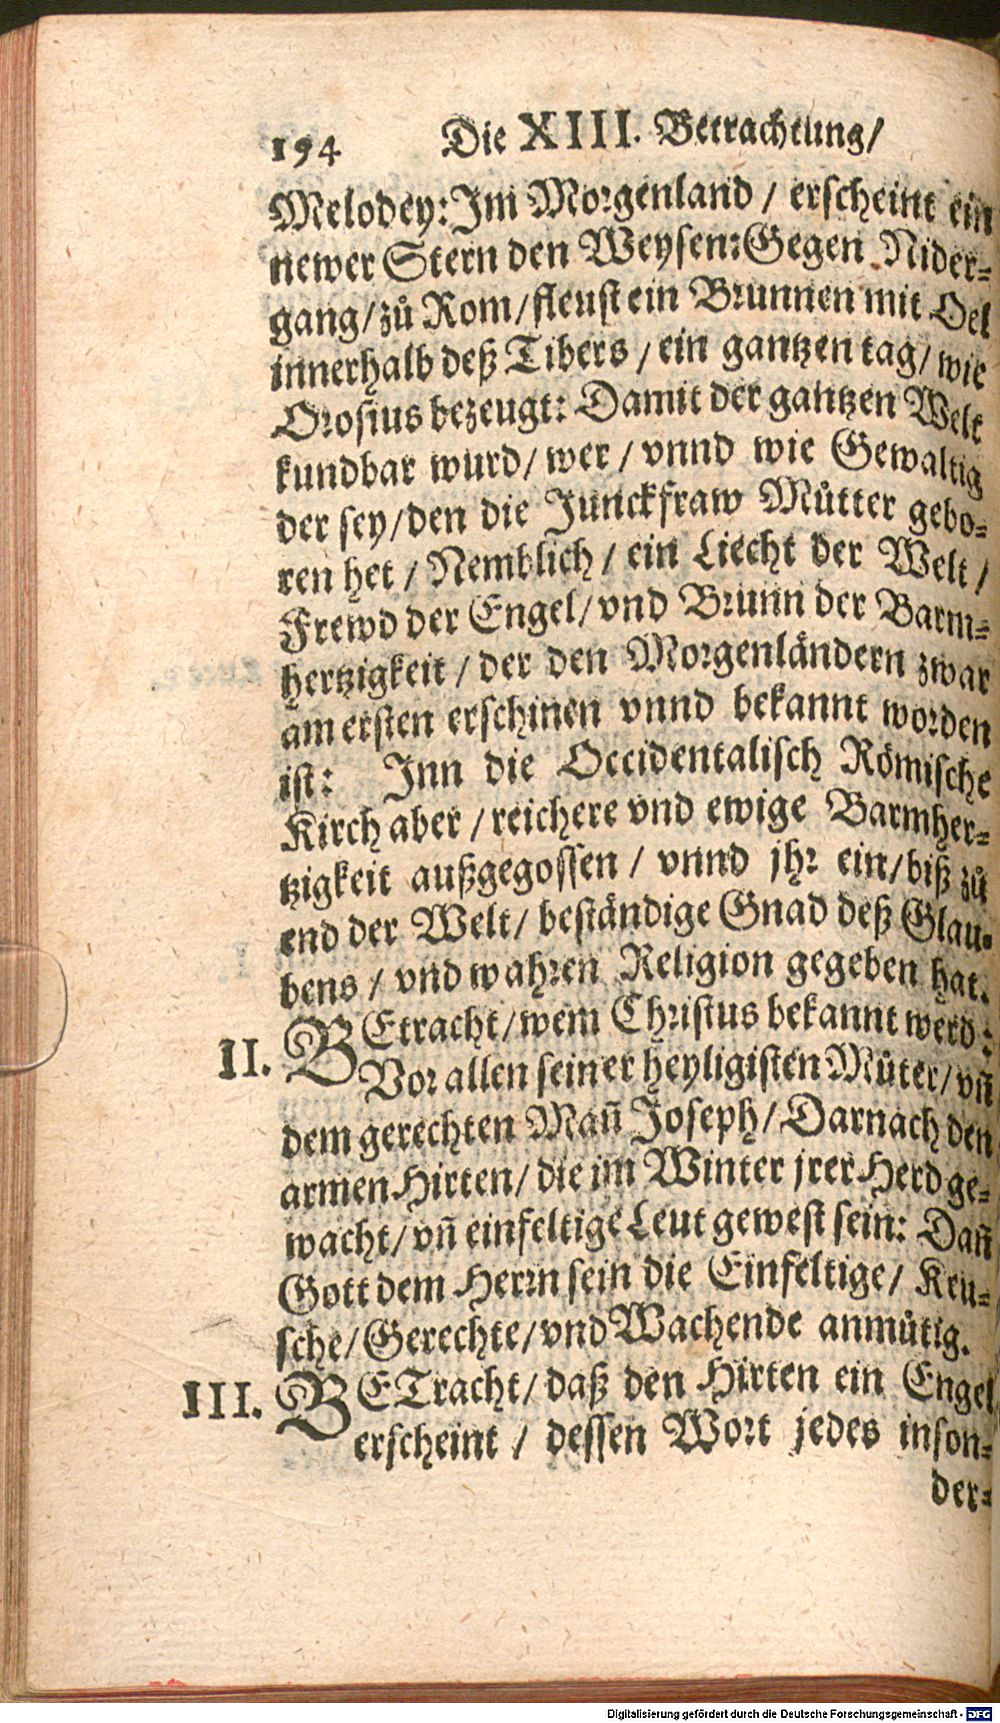 194 Die XIII. Betrachtung/
Melodey: Im Morgenland / erscheint ein
newer Stern den Weysen: Gegen Nider-
gang/zů Rom/fleust ein Brunnen mit Oel
innerhalb deß Tibers / ein gantzen tag/ wie
Orosius bezeugt: Damit der gantzen Welt
kundbar wurd/ wer / vnnd wie Gewaltig
der sey/den die Junckfraw Můtter gebo-
ren het / Nemblich / ein Liecht der Welt /
Frewd der Engel/ vnd Brunn der Barm-
hertzigkeit / der den Morgenländern zwar
am ersten erschinen vnnd bekannt worden
ist: Inn die Occidentalisch Römische
Kirch aber / reichere vnd ewige Barmher-
tzigkeit außgegossen / vnnd jhr ein/biß zů
end der Welt/ beständige Gnad deß Glau-
bens / vnd wahren Religion gegeben hat.
II. BEtracht/wem Christus bekannt werd:
Vor allen seiner heyligisten Můter/ vñ
dem gerechten Mañ Joseph/ Darnach den
armen Hirten/ die im Winter jrer Herd ge-
wacht/ vñ einfeltige Leut gewest sein: Dañ
Gott dem Herrn sein die Einfeltige/ Keu-
sche/ Gerechte/ vnd Wachende anmůtig.
III. BETracht/ daß den Hirten ein Engel
erscheint / dessen Wort jedes inson-
der-
Digitalisierung gefördert durch die Deutsche Forschungsgemeinschaft - DFG